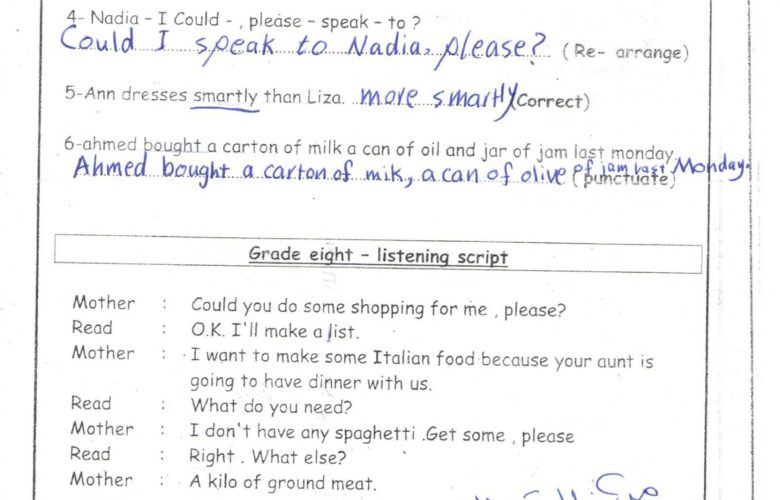 4- Nadia - I Could - , please - speak - to ?
Could I speak to Nadia, please? (Re- arrange)
5-Ann dresses smartly than Liza. more smartly (Correct)
6-ahmed bought a carton of milk a can of oil and jar of jam last monday
Ahmed bought a carton of mik, a can of olive of jam last Monday.
(punctuate)
Grade eight - listening script
Mother : Could you do some shopping for me , please?
Read : O.K. I'll make a list.
Mother : I want to make some Italian food because your aunt is
going to have dinner with us.
Read : What do you need?
Mother : I don't have any spaghetti .Get some , please
Read : Right . What else?
Mother : A kilo of ground meat.